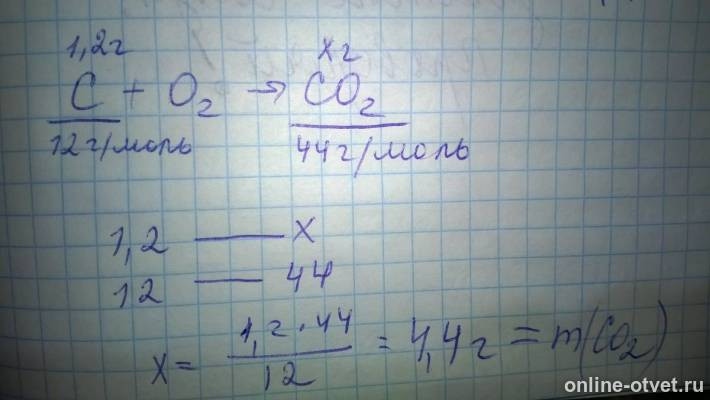 1,2г xг
C + O₂ → CO₂
12г/моль 44г/моль
1,2 — x
12 — 44
x = 1,2·44/12 = 4,4г = m(CO₂)
online-otvet.ru